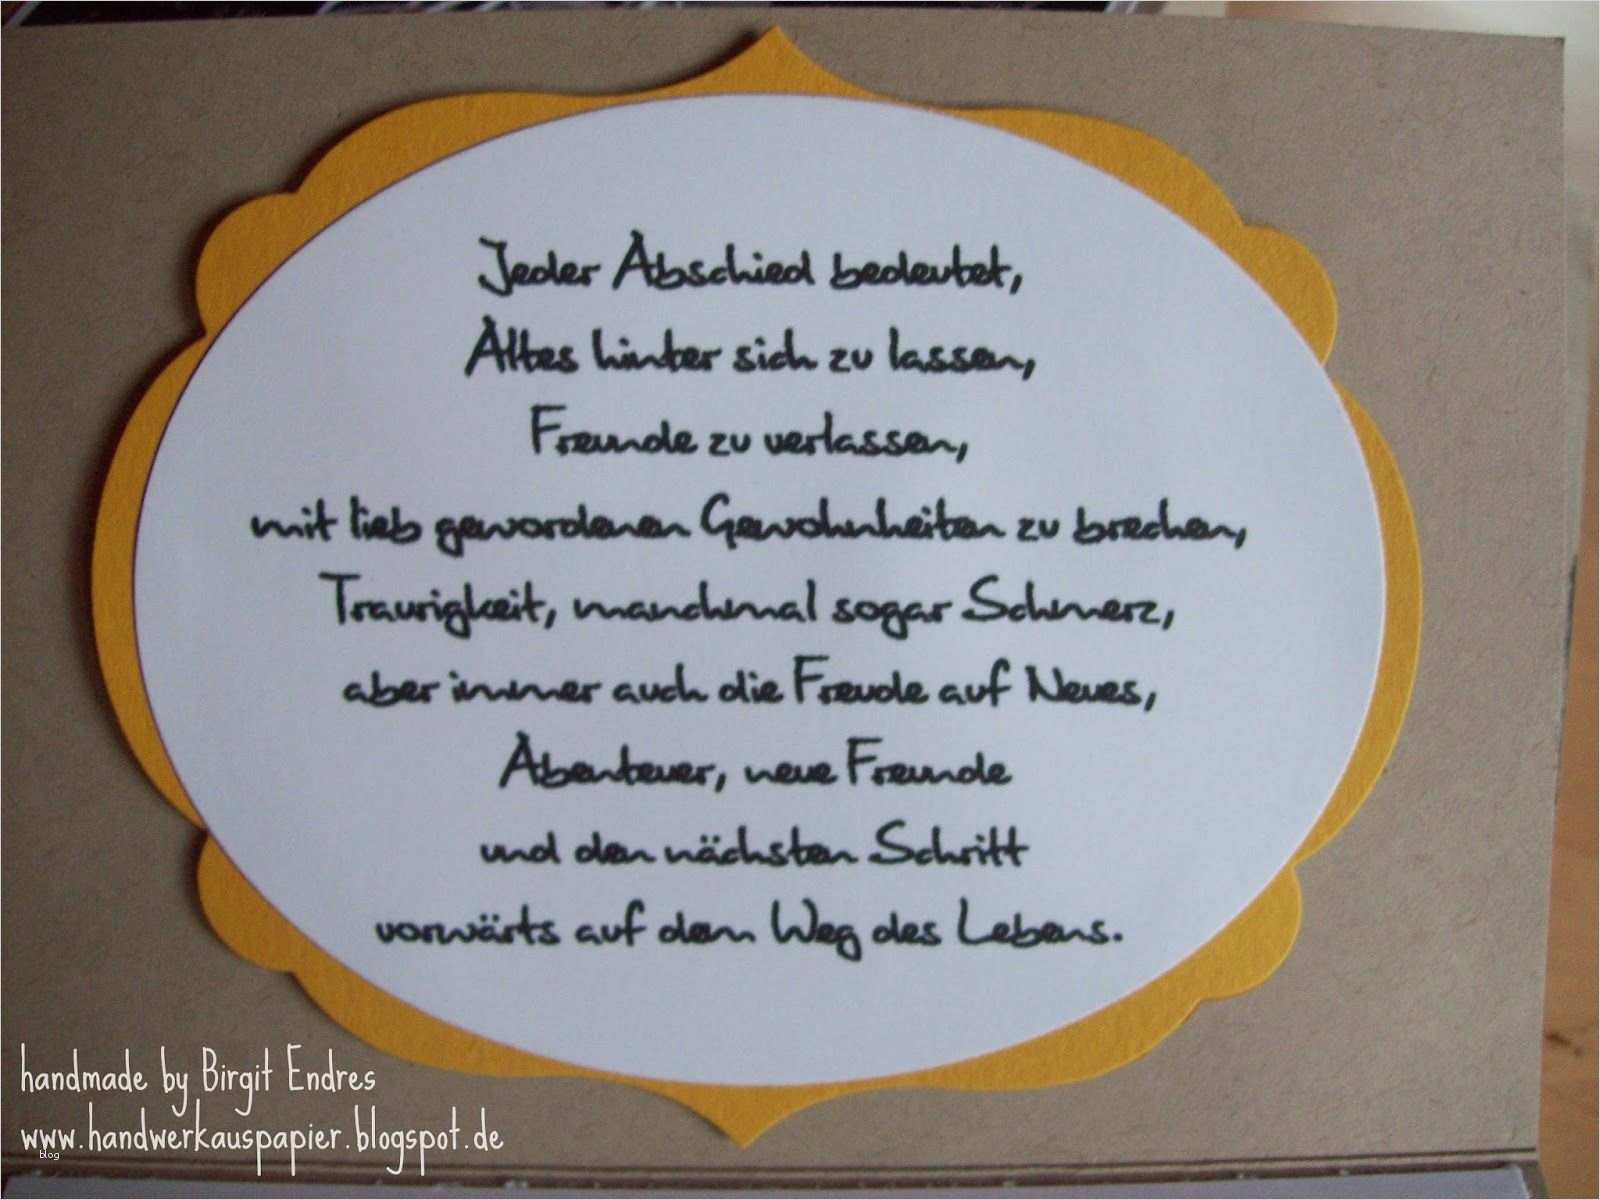 Jeder Abschied bedeutet,
Altes hinter sich zu lassen,
Freunde zu verlassen,
mit lieb gewordenen Gewohnheiten zu brechen,
Traurigkeit, manchmal sogar Schmerz,
aber immer auch die Freude auf Neues,
Abenteuer, neue Freunde
und den nächsten Schritt
vorwärts auf dem Weg des Lebens.
handmade by Birgit Endres
www.handwerkauspapier.blogspot.de
blog